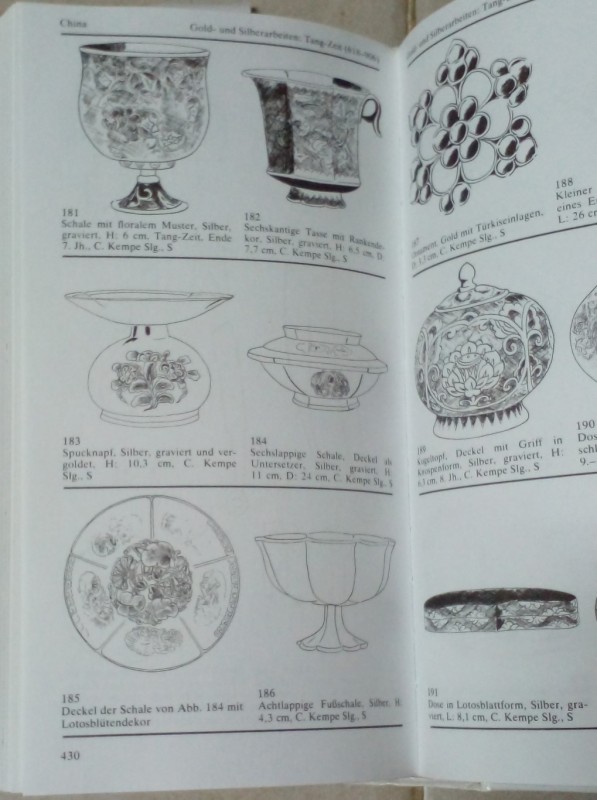 China
Gold- und Silberarbeiten: Tang-Zeit (618–906)
181
Schale mit floralem Muster, Silber,
graviert, H: 6 cm, Tang-Zeit, Ende
7. Jh., C. Kempe Slg., S
182
Sechskantige Tasse mit Rankende-
kor, Silber, graviert, H: 6.5 cm, D:
7,7 cm, C. Kempe Slg., S
183
Spucknapf, Silber, graviert und ver-
goldet, H: 10,3 cm, C. Kempe
Slg., S
184
Sechslappige Schale, Deckel als
Untersetzer, Silber, graviert, H:
11 cm, D: 24 cm, C. Kempe Slg., S
185
Deckel der Schale von Abb. 184 mit
Lotosblütendekor
186
Achtlappige Fußschale, Silber, H:
4,3 cm, C. Kempe Slg., S
430
und Silberarbeiten: Tang-
Gold mit Türkiseinlagen,
C. Kempe Slg., S
188
Kleiner
eines
L: 26 cm
189
Kugeltopf, Deckel mit Griff in
Knospenform, Silber, graviert, H:
6,3 cm, 8. Jh., C. Kempe Slg., S
190
Dos
schl
9.–
191
Dose in Lotosblattform, Silber, gra-
viert, L: 8,1 cm, C. Kempe Slg., S